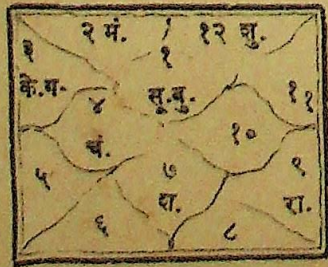 २ मं. १२ शु.
३ १
के.ग. सू.बु. ११
४ १०
चं.
५ ७ ९
श. रा.
६ ८